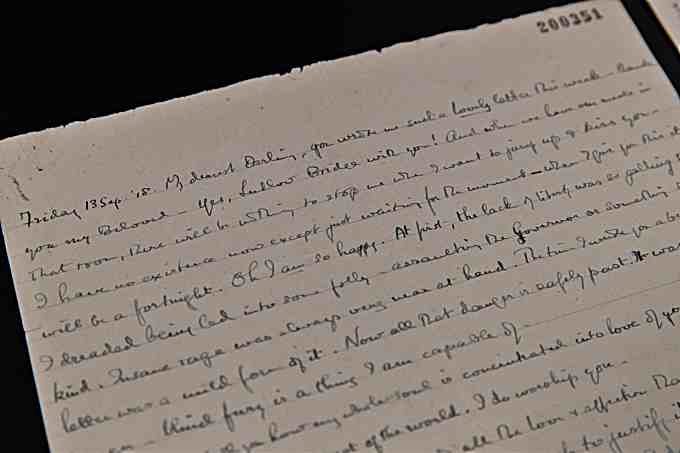 200351
Friday 13 Sep. '18. My dearest Darling, you wrote me such a lovely letter this week — thank
you my Beloved. Yes, Ludlow Bridge with you! And when we have one made in
that room, there will be nothing to stop me when I want to jump up & kiss you.
I have no existence now except just waiting for the moment — when I give you this it
will be a fortnight. Oh I am so happy. At first, the lack of liberty was so galling
I dreaded being led into some folly — assaulting the Governor or something
kind. Insane rage was always very near at hand. The time I wrote you
letter was a mild form of it. Now all that danger is safely past. It was
— blind fury is a thing I am capable of.
you how my whole soul is concentrated into love of
of the world. I do worship you.
all the love & affection
to justify